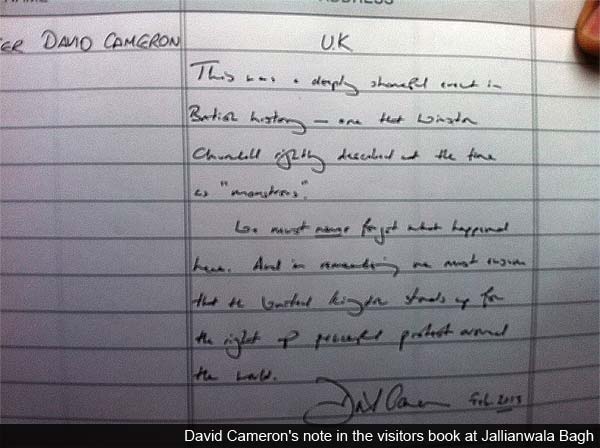 NAME ADDRESS
ER DAVID CAMERON U.K
This was a deeply shameful event in
British history – one that Winston
Churchill rightly described at the time
as "monstrous".
We must never forget what happened
here. And in remembering we must ensure
that the United Kingdom stands up for
the right of peaceful protest around
the world.
David Cameron Feb. 2013
David Cameron's note in the visitors book at Jallianwala Bagh